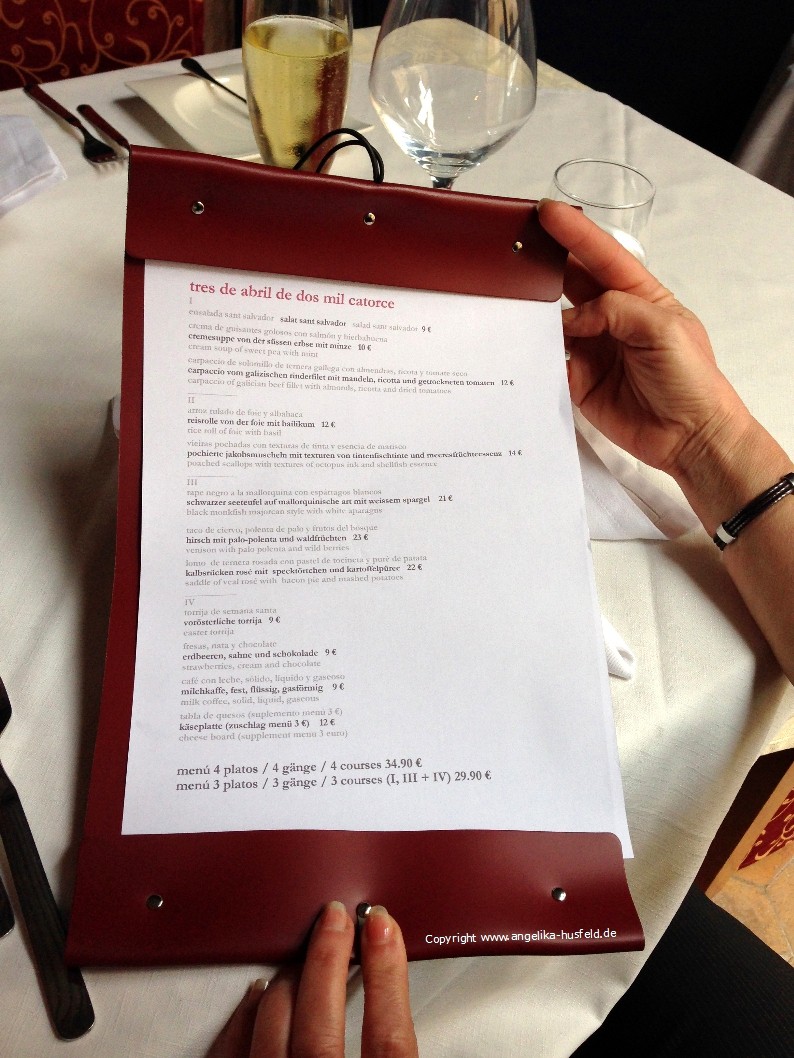 tres de abril de dos mil catorce
I
ensalada sant salvador salat sant salvador salad sant salvador 9 €
crema de guisantes golosos con salmón y hierbabuena
cremesuppe von der süssen erbse mit minze 10 €
cream soup of sweet pea with mint
carpaccio de solomillo de ternera gallega con almendras, ricota y tomate seco
carpaccio vom galizischen rinderfilet mit mandeln, ricotta und getrockneten tomaten 12 €
carpaccio of galician beef fillet with almonds, ricotta and dried tomatoes
II
arroz rulado de foie y albahaca
reisrolle von der foie mit bailikum 12 €
rice roll of foie with basil
vieiras pochadas con texturas de tinta y esencia de marisco
pochierte jakobsmuscheln mit texturen von tintenfischtinte und meeresfrüchteessenz 14 €
poached scallops with textures of octopus ink and shellfish essence
III
rape negro a la mallorquina con esparragos blancos
schwarzer seeteufel auf mallorquinische art mit weissem spargel 21 €
black monkfish majorcan style with white aparagus
taco de ciervo, polenta de palo y frutos del bosque
hirsch mit palo-polenta und waldfrüchten 23 €
venison with palo polenta and wild berries
lomo de ternera rosada con pastel de tocineta y puré de patata
kalbsrücken rosé mit specktörtchen und kartoffelpüree 22 €
saddle of veal rosé with bacon pie and mashed potatoes
IV
torrija de semana santa
vorösterliche torrija 9 €
easter torrija
fresas, nata y chocolate
erdbeeren, sahne und schokolade 9 €
strawberries, cream and chocolate
café con leche, sólido, líquido y gaseoso
milchkaffe, fest, flüssig, gasförmig 9 €
milk coffee, solid, liquid, gaseous
tabla de quesos (suplemento menú 3 €)
käseplatte (zuschlag menü 3 €) 12 €
cheese board (supplement menu 3 euro)
menú 4 platos / 4 gänge / 4 courses 34.90 €
menú 3 platos / 3 gänge / 3 courses (I, III + IV) 29.90 €
Copyright www.angelika-husfeld.de